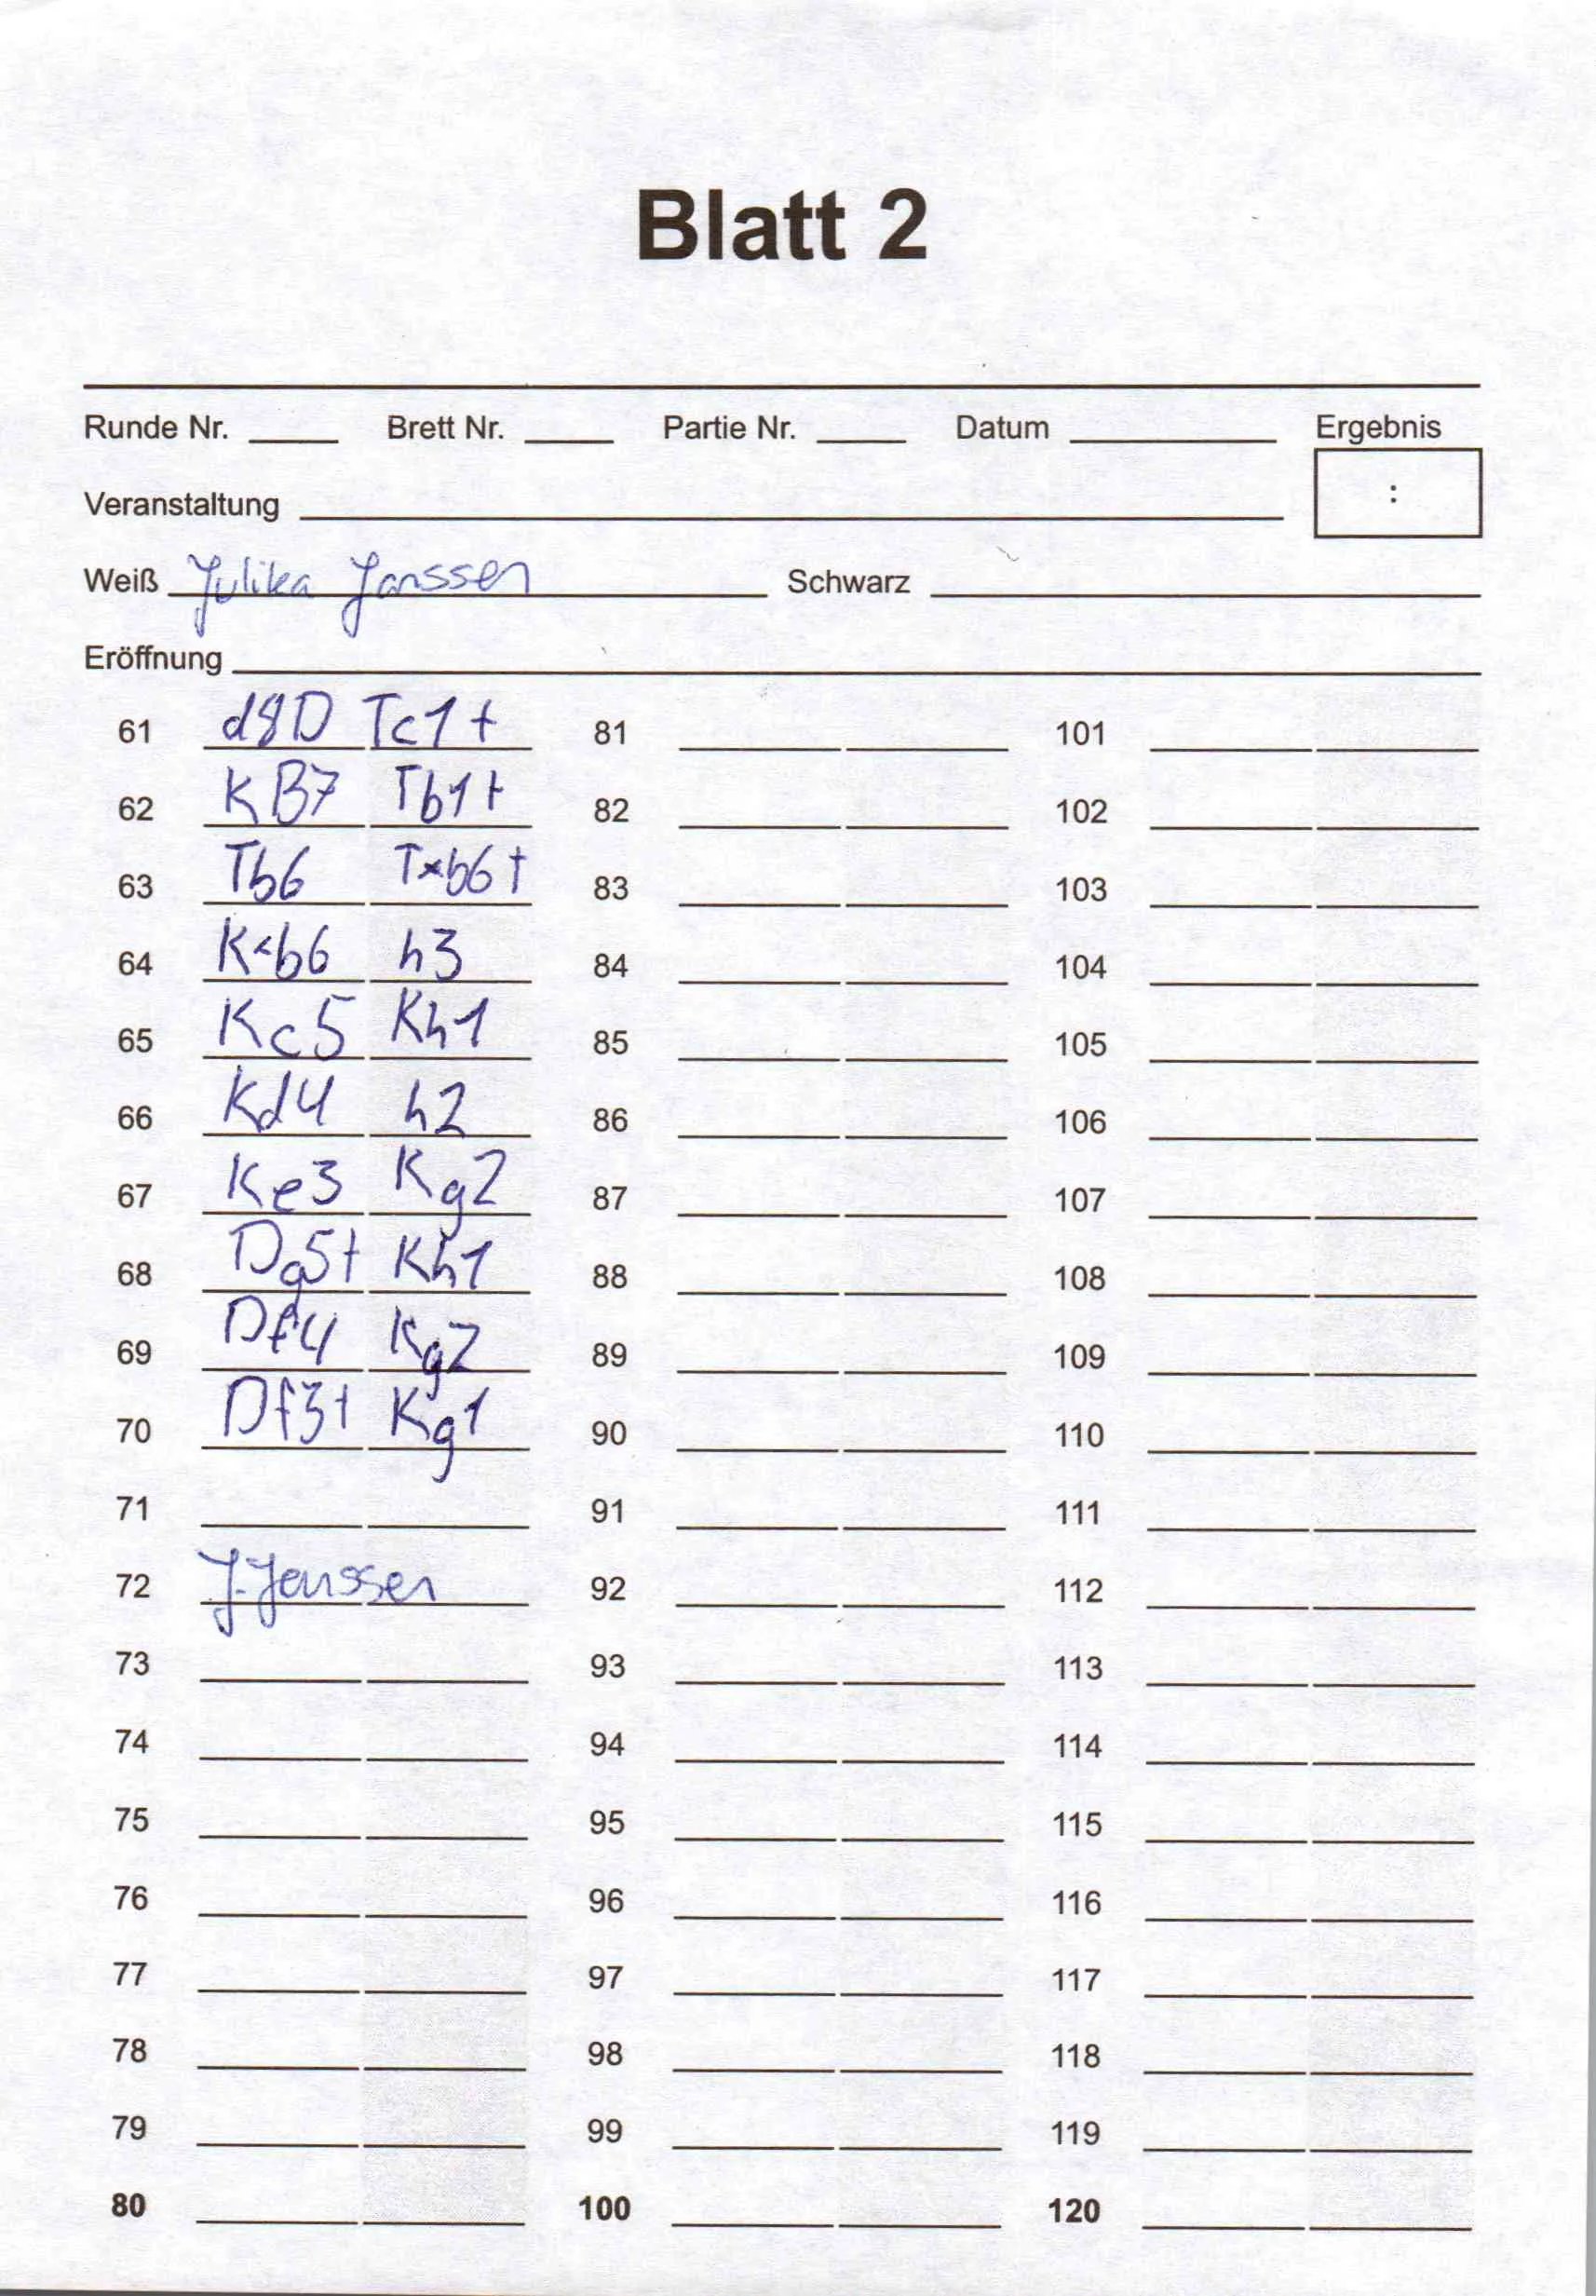 Blatt 2
Runde Nr. Brett Nr. Partie Nr. Datum Ergebnis
:
Veranstaltung
Weiß Julika Janssen Schwarz
Eröffnung
61 d8D Tc1+ 81 101
62 KB7 Tb1+ 82 102
63 Tb6 Txb6+ 83 103
64 Kxb6 h3 84 104
65 Kc5 Kh1 85 105
66 Kd4 h2 86 106
67 Ke3 Kg2 87 107
68 Dg5+ Kh1 88 108
69 Df4 Kg2 89 109
70 Df3+ Kg1 90 110
71 91 111
72 J. Janssen 92 112
73 93 113
74 94 114
75 95 115
76 96 116
77 97 117
78 98 118
79 99 119
80 100 120